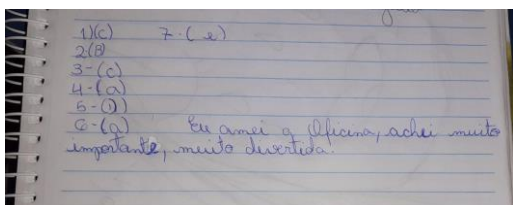 1)(c) 7-(e)
2(B)
3-(c)
4-(a)
5-(D)
6-(a) Eu amei a Oficina, achei muito
importante, muito divertida.